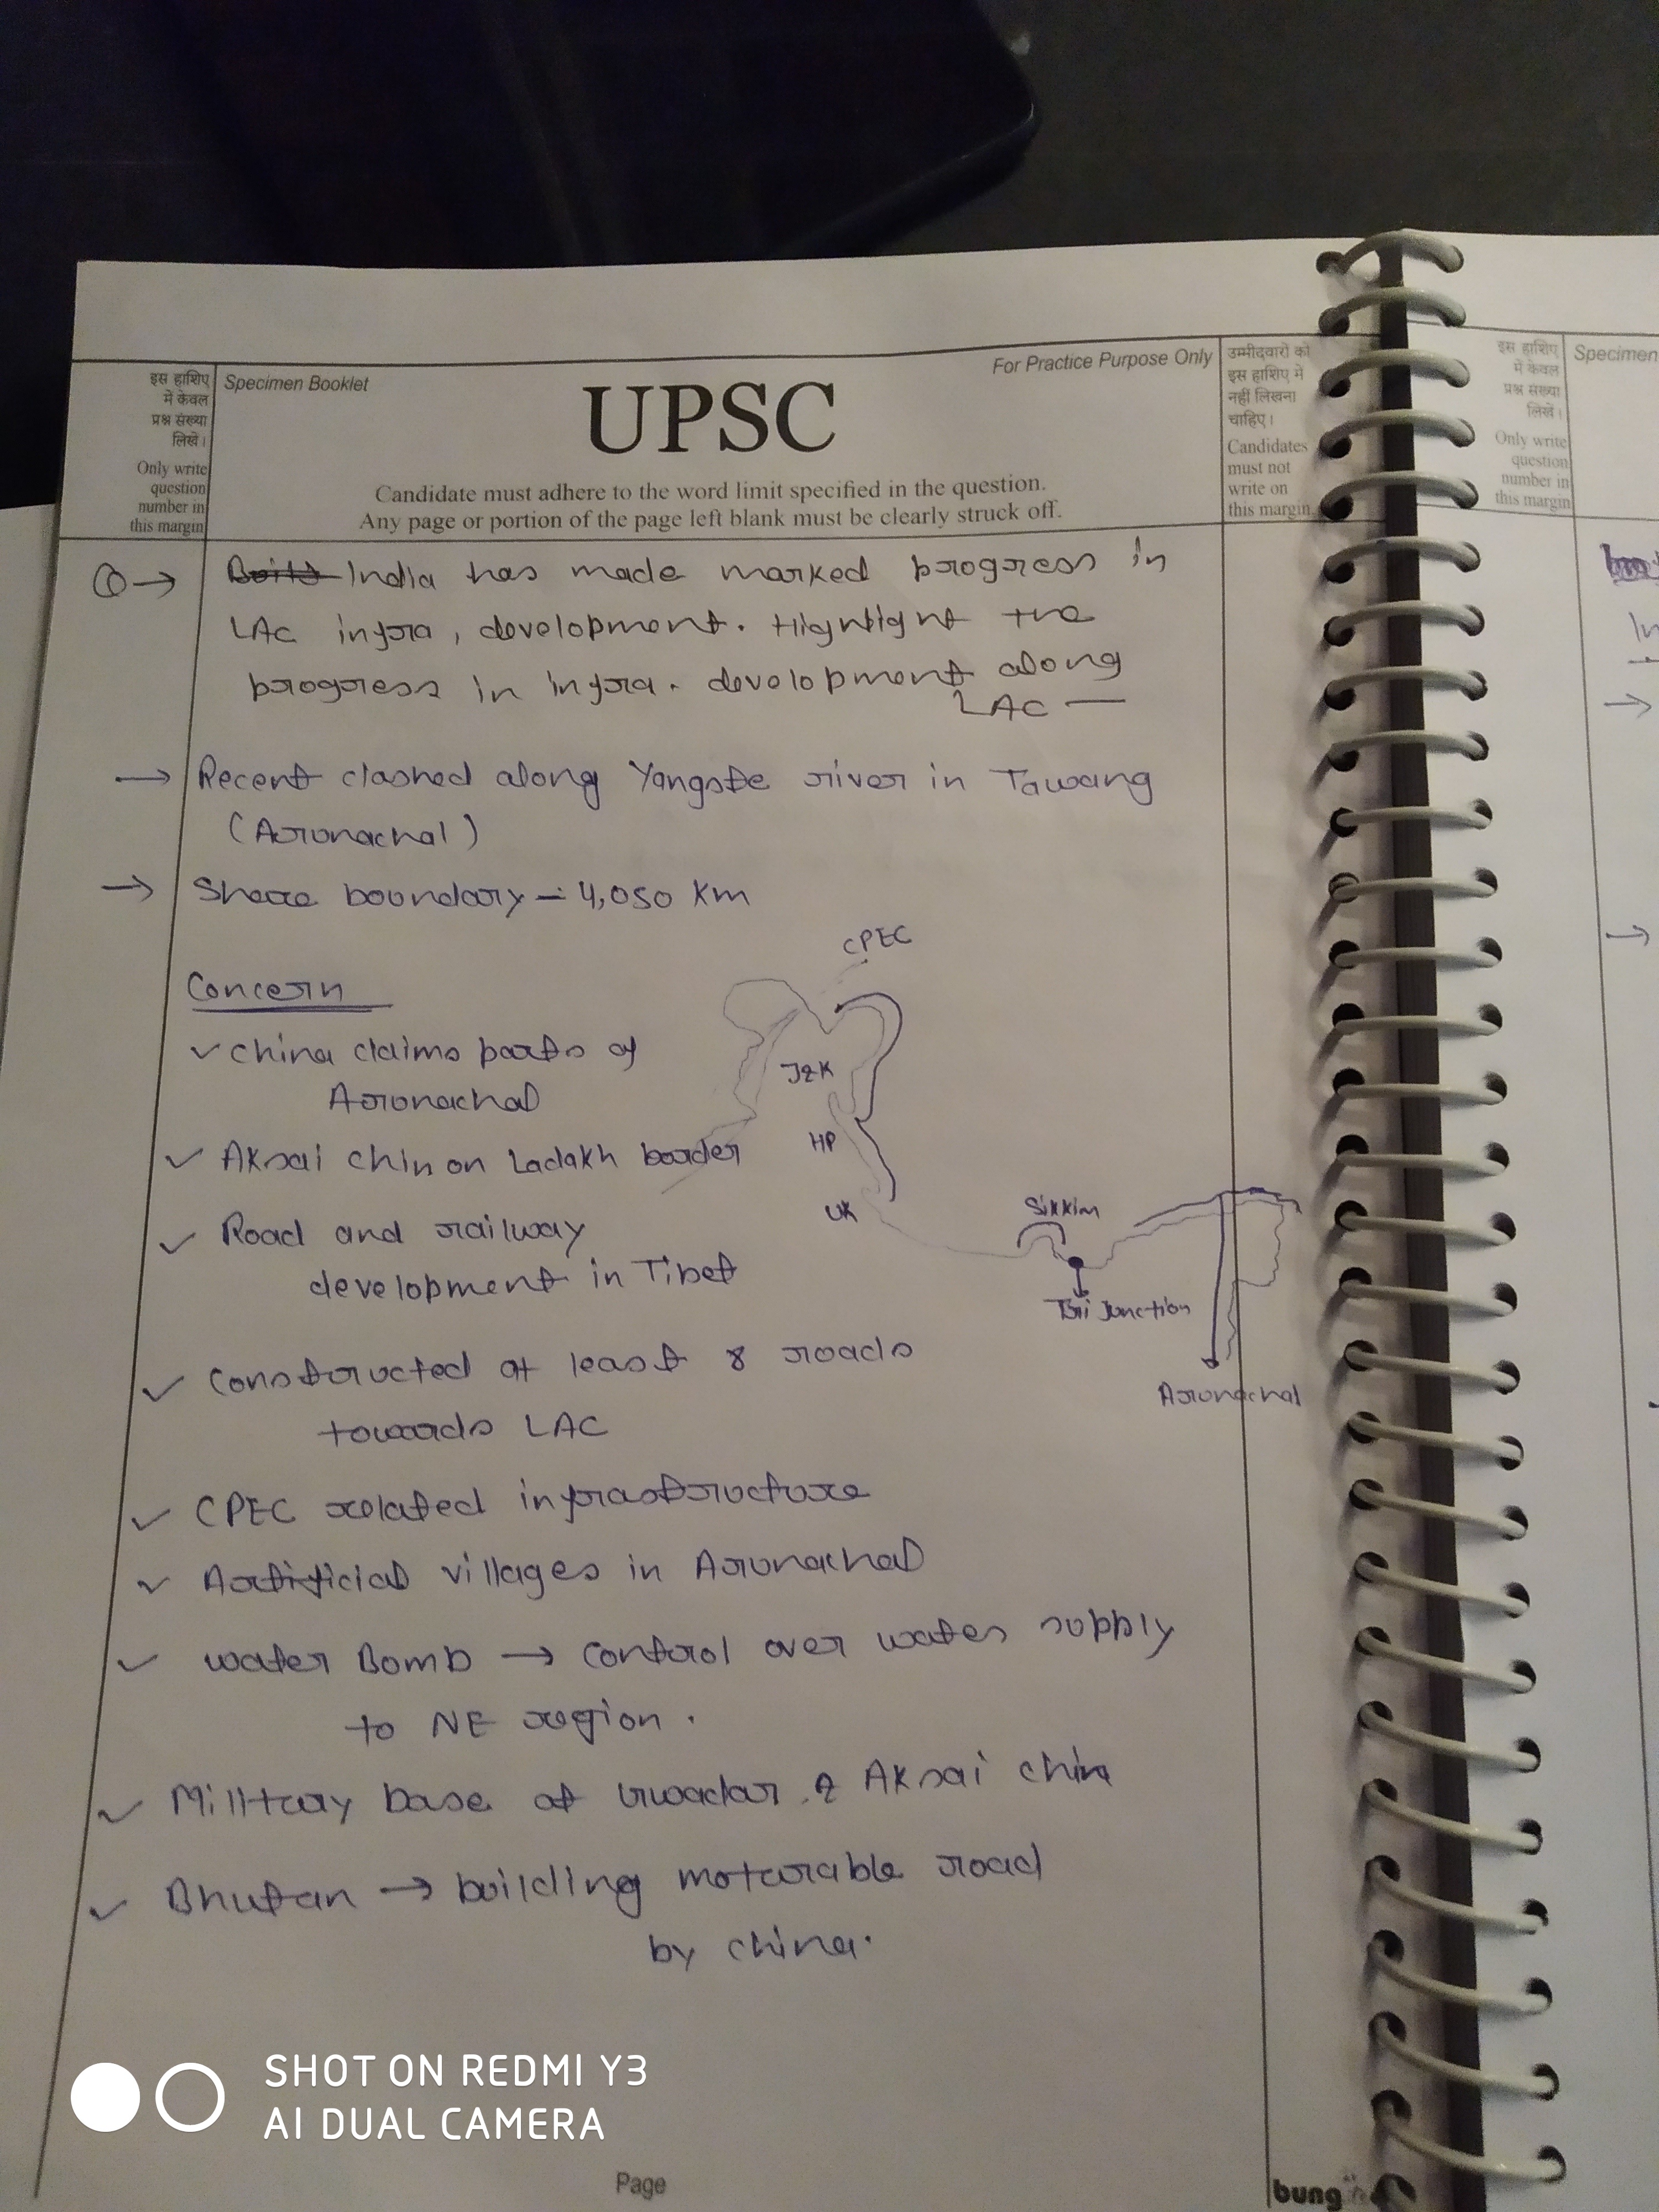 इस हाशिए
में केवल
प्रश्न संख्या
लिखें।
Only write
question
number in
this margin
Specimen Booklet
For Practice Purpose Only
UPSC
Candidate must adhere to the word limit specified in the question.
Any page or portion of the page left blank must be clearly struck off.
उम्मीदवारों को
इस हाशिए में
नहीं लिखना
चाहिए।
Candidates
must not
write on
this margin
Q → India has made marked progress in
LAC infra, development. Highlight the
progress in infra. development along
LAC —
→ Recent clashed along Yangste river in Tawang
(Arunachal)
→ Share boundary – 4,050 Km
Concern
✓ China claims parts of
Arunachal
✓ Aksai chin on Ladakh border
✓ Road and railway
development in Tibet
✓ Constructed at least 8 roads
towards LAC
✓ CPEC related infrastructure
✓ Artificial villages in Arunachal
✓ water Bomb → Control over water supply
to NE region.
✓ Military base at Gwadar & Aksai chin
✓ Bhutan → building motorable road
by china.
CPEC
J&K
HP
UK
Sikkim
Tri Junction
Arunachal
SHOT ON REDMI Y3
AI DUAL CAMERA
Page
bung
इस हाशिए
में केवल
प्रश्न संख्या
लिखें।
Only write
question
number in
this margin
Specimen